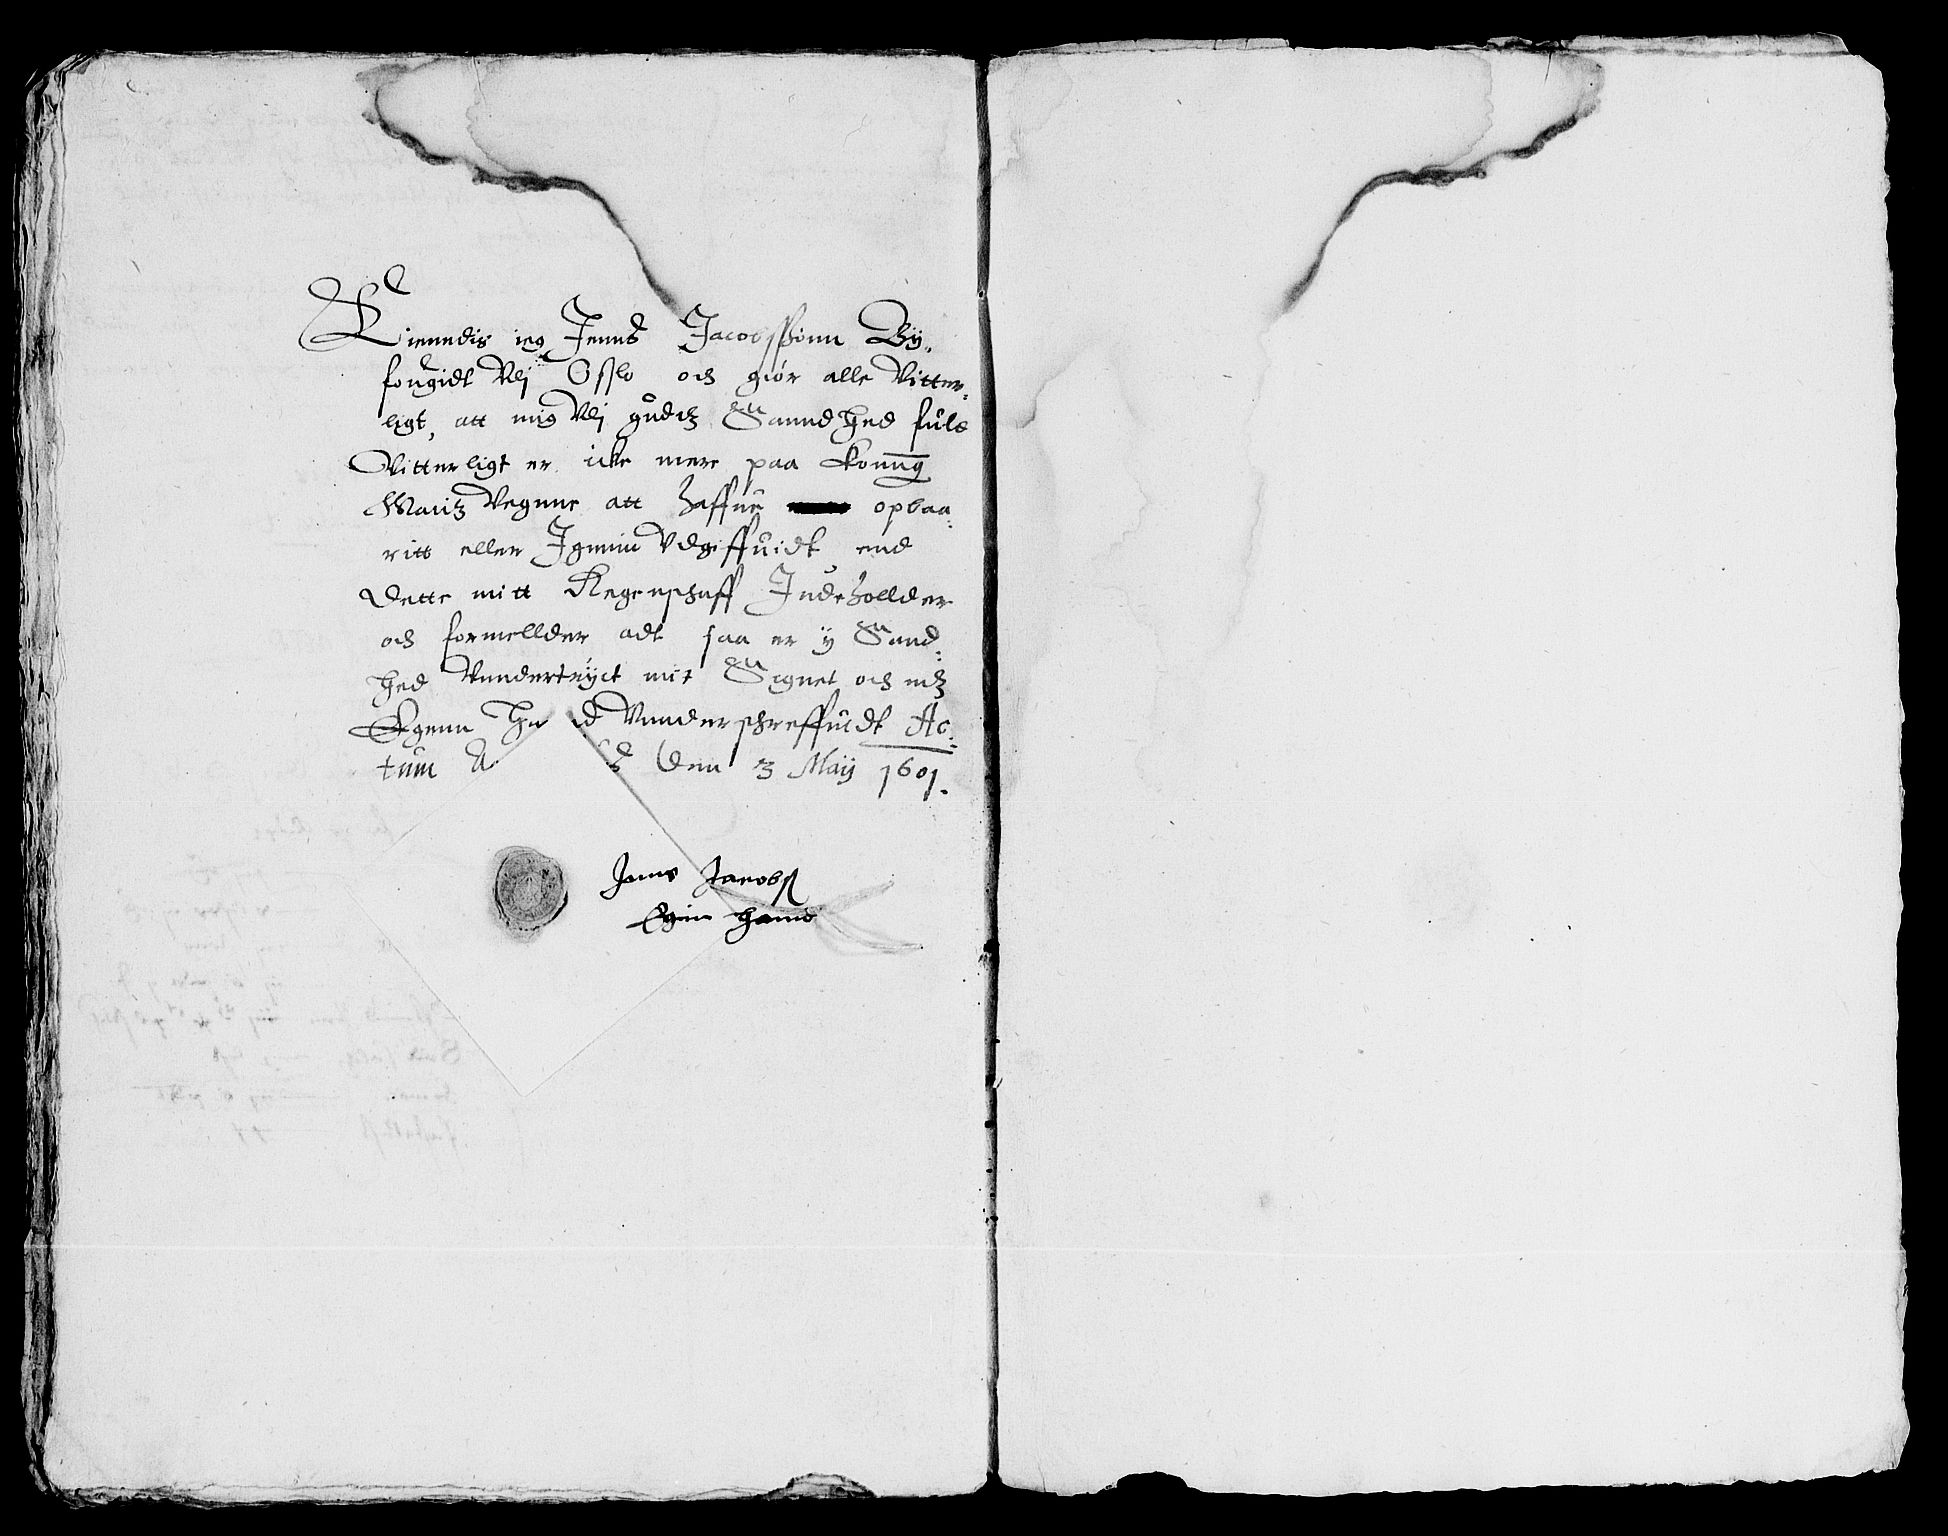 Kienndis ieg Jenns Jacobsßönn By,
fougidt Vdj Opslo och giør alle Vitter,
ligt, att mig Vdj gudtz Sanndhed fuld
Vitterligt er icke mere paa Konng
Maiitz Vegnne att haffue opbaa:
ritt eller Igenn Vdgiffuidt end
dette mitt Regenschaff Indeholder
och formellder adt saa er y Sand:
hed Vnndertryct mit Signet och mz
Egenn Ha d Vnnderschreffuidt Ac:
tum A den 3 Maij 1601.
Jenns Jacobs
Egin hannd